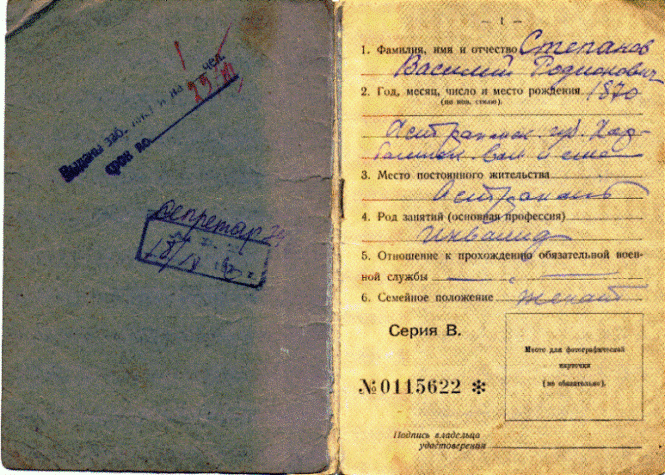 Выданы заб. кн. и на чел.
срок по
Секретар
— 1 —
1. Фамилия, имя и отчество Степанов
Василий Родионович
2. Год, месяц, число и место рождения 1870
(по нов. стилю).
3. Место постоянного жительства
Астрахань
4. Род занятий (основная профессия)
Инвалид
5. Отношение к прохождению обязательной воен-
ной службы
6. Семейное положение женат
Серия В.
Место для фотографической
карточки
(не обязательно).
№ 0115622 ✻
Подпись владельца
удостоверения